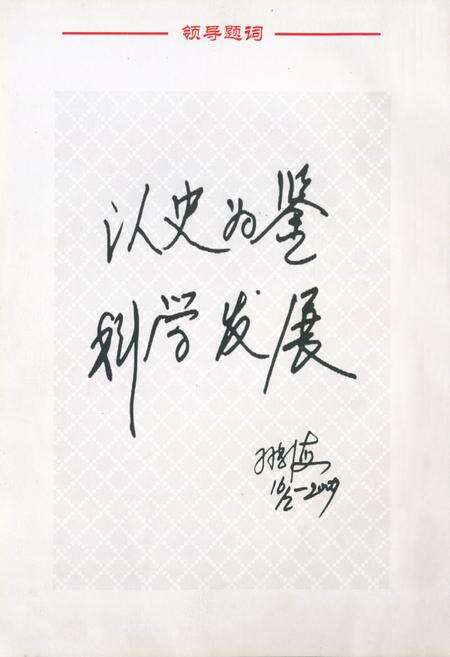 领导题词
以史为鉴
科学发展
16/2-2009